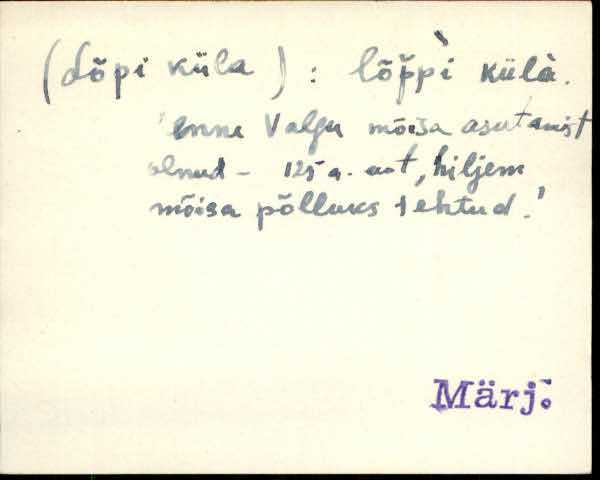 (Lõpi küla) : lõp̆pì külà.
'enne Valgu mõisa asutamist
olnud - 125 a. eest, hiljem
mõisa põlluks tehtud.'
Märj.